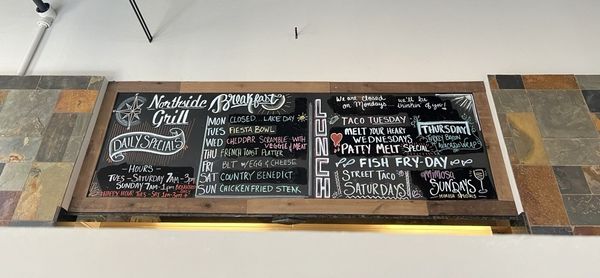 Northside
Grill
DAILY SPECIALS
- HOURS -
TUES - SATURDAY 7AM - 3PM
SUNDAY 7AM - 1PM
HAPPY HOUR
Breakfast
MON CLOSED...LAKE DAY
TUES FIESTA BOWL
WED CHEDDAR SCRAMBLE WITH
VEGGIE & MEAT
THU FRENCH TOAST PLATTER
FRI BLT W/ EGG & CHEESE
SAT COUNTRY BENEDICT
SUN CHICKEN FRIED STEAK
LUNCH
We are closed
on Mondays
we'll be
thinkin' of you!
TACO TUESDAY
MELT YOUR HEART
WEDNESDAYS
PATTY MELT SPECIAL
THURSDAY
TURKEY BACON
AVOCADO WRAP
FISH FRY-DAY
STREET TACO
SATURDAYS!
MIMOSA
SUNDAYS
MIMOSA SPECIALS